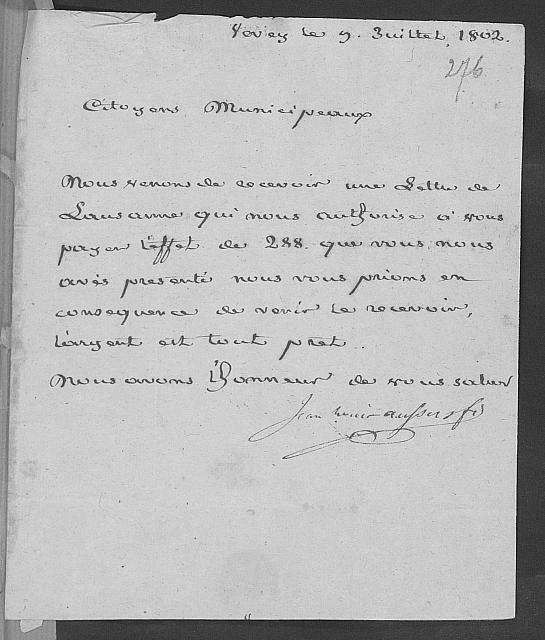 Vevey le 9. Juillet, 1802.
276
Citoyens Municipeaux
Nous venons de recevoir une Lettre de
Lausanne qui nous authorise a vous
payer l'effet de 288. que vous nous
avés presenté nous vous prions en
consequence de venir le recevoir,
l'argent est tout pret.
Nous avons l'honneur de vous saluer
Jean Louis fs